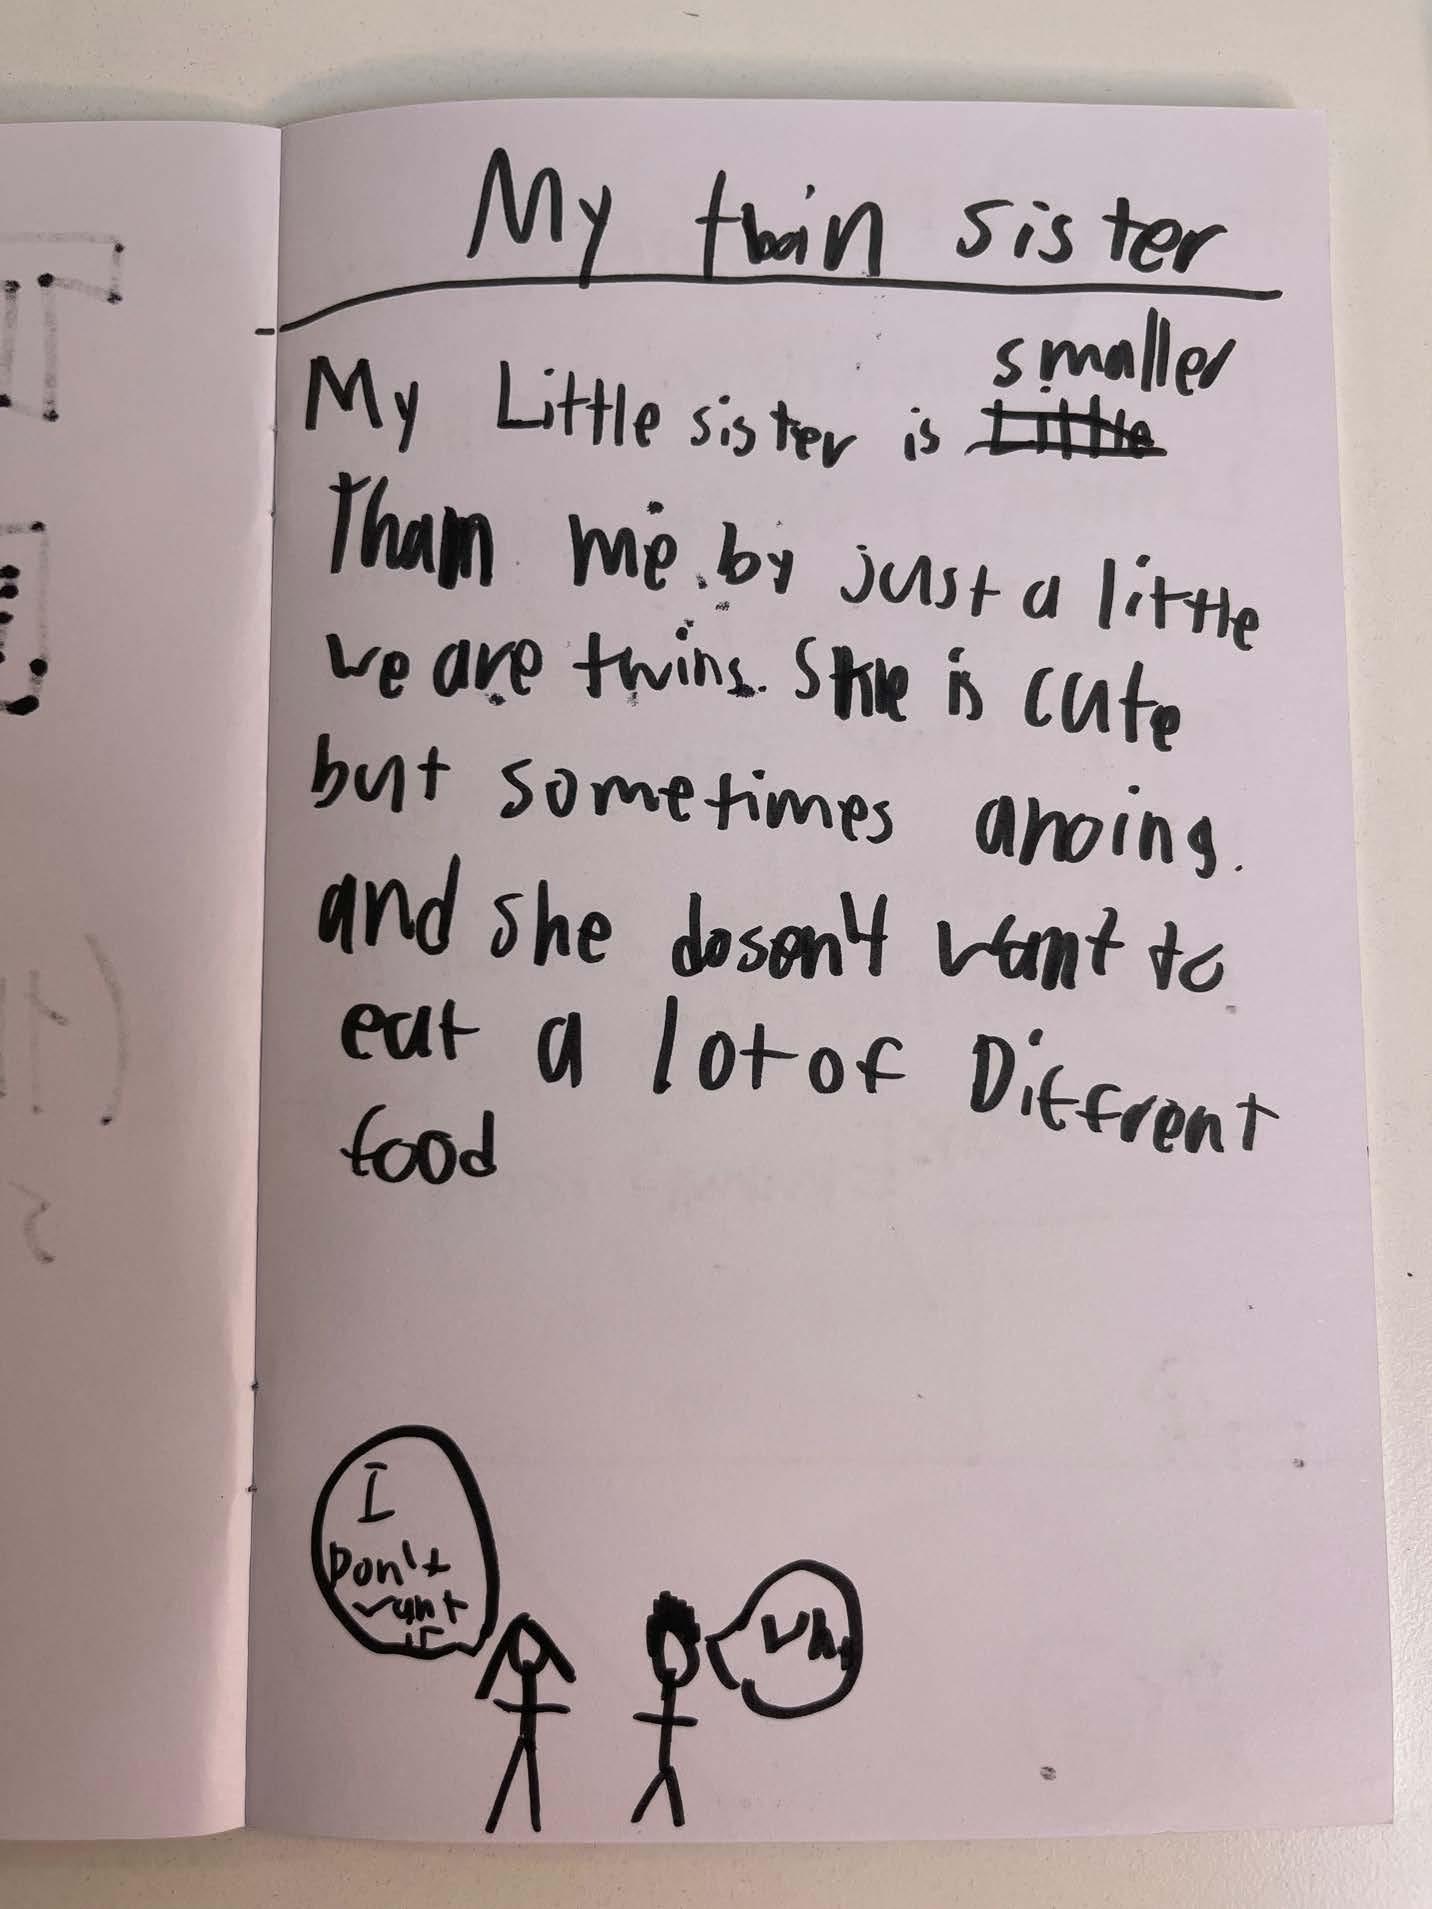 My twin sister
smaller
My Little sister is Little
Tham me. by just a little
we are twins. She is cute
but sometimes anoing.
and she doson't want to
eat a lot of Diffrent
food
I
Don't
want
it